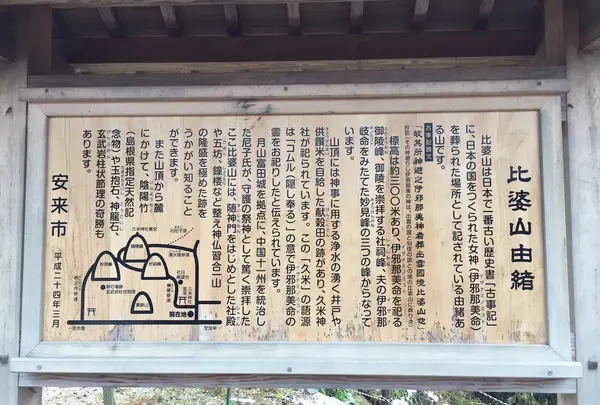 比婆山由緒
比婆山は日本で一番古い歴史書「古事記」
に、日本の国をつくられた女神（伊邪那美命）
を葬られた場所として記されている由緒あ
る山です。
古事記原文
「故其所神避之伊邪那美神者葬出雲國與伯伎國堺比婆之山也」
標高は約三〇〇米あり、伊邪那美命を祀る
御陵峰、御陵を崇拝する社祠峰、夫の伊邪那
岐命をみたてた妙見峰の三つの峰からなって
います。
山頂には神事に用する浄水の湧く井戸や
供饌米を自給した献穀田の跡があり、久米神
社が祀られています。この「久米」の語源
は「コムル（隠し奉る）」の意で伊邪那美命の
霊をお祀りしたと伝えられています。
月山富田城を拠点に、中国十一州を統治し
た尼子氏が、守護の祭神として篤く崇拝した
ここ比婆山には、随神門をはじめとした社殿
や五坊、鐘楼など整え神仏習合一山
の隆盛を極めた跡を
うかがい知ること
ができます。
また山頂から麓
にかけて、陰陽竹
（島根県指定天然記
念物）や玉抱石、神龍、
玄武岩柱状節理の奇勝も
あります。
安来市
平成二十四年三月
現在地